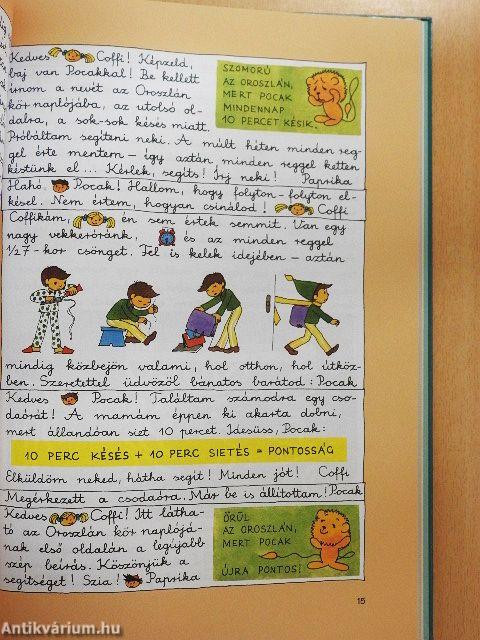 Kedves Coffi! Képzeld,
baj van Pocakkal! Be kellett
írnom a nevét az Oroszlán
kör naplójába, az utolsó ol-
dalra, a sok-sok késés miatt.
Próbáltam segíteni neki. A múlt héten minden reg-
gel érte mentem – így aztán minden reggel ketten
késtünk el ... Kérlek, segíts! Írj neki! Paprika
SZOMORÚ
AZ OROSZLÁN,
MERT POCAK
MINDENNAP
10 PERCET KÉSIK.
Hahó, Pocak! Hallom, hogy folyton-folyton el-
késel. Nem értem, hogyan csinálod! Coffi
Coffikám, én sem értek semmit. Van egy
nagy vekkeróránk, és az minden reggel
1/2 7-kor csönget. Fel is kelek idejében – aztán
mindig közbejön valami, hol otthon, hol útköz-
ben. Szeretettel üdvözöl bánatos barátod: Pocak
Kedves Pocak! Találtam számodra egy cso-
daórát! A mamám éppen ki akarta dobni,
mert állandóan siet 10 percet. Idesüss, Pocak:
10 PERC KÉSÉS + 10 PERC SIETÉS = PONTOSSÁG
Elküldöm neked, hátha segít! Minden jót! Coffi
Megérkezett a csodaóra. Már be is állítottam! Pocak
Kedves Coffi! Itt látha-
tó az Oroszlán kör naplójá-
nak első oldalán a légújabb
szép beírás. Köszönjük a
segítséget! Szia! Paprika
ŐRÜL
AZ OROSZLÁN,
MERT POCAK
ÚJRA PONTOS!
15
Antikvárium.hu